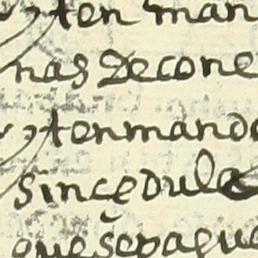 yten man
nas de cone
ytenmando
sin cedula
que se pague